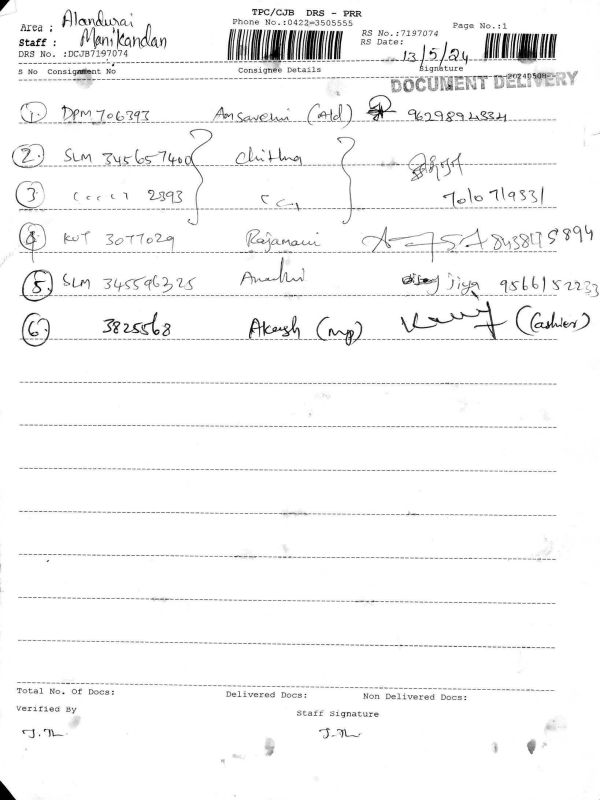 TPC/CJB DRS - PRR
Area : Alandurai
Phone No.:0422-3505555
Page No.:1
RS No.:7197074
Staff : Manikandan
RS Date: 13/5/24
DRS No. :DCJB7197074
S No Consignment No Consignee Details Signature
20240508
DOCUMENT DELIVERY
1. DPM 706393 (Ald) 9629894334
2. SLM 345657400 Chithra சித்ரா
3 〃 2393 〃 7010719331
4 KUT 3077029 Rajamani 8438175894
5. SLM 345596325 jiya 9566152233
6. 3825568 Akash (mp) (Cashier)
Total No. Of Docs: Delivered Docs: Non Delivered Docs:
Verified By Staff Signature